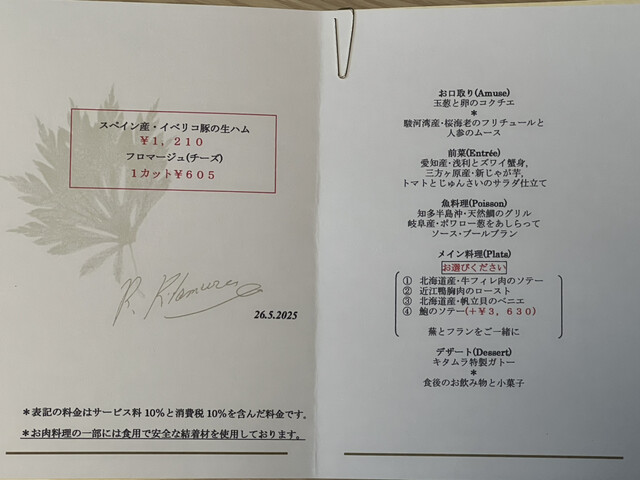 スペイン産・イベリコ豚の生ハム
￥１，２１０
フロマージュ(チーズ)
１カット￥６０５
R. Kitamura
26.5.2025
＊表記の料金はサービス料 10％と消費税 10％を含んだ料金です。
＊お肉料理の一部には食用で安全な結着材を使用しております。
お口取り(Amuse)
玉葱と卵のコクチエ
＊
駿河湾産・桜海老のフリチュールと
人参のムース
前菜(Entrée)
愛知産・浅利とズワイ蟹身，
三方ヶ原産・新じゃが芋，
トマトとじゅんさいのサラダ仕立て
魚料理(Poisson)
知多半島沖・天然鯛のグリル
岐阜産・ポワロー葱をあしらって
ソース・ブールブラン
メイン料理(Plats)
お選びください
① 北海道産・牛フィレ肉のソテー
② 近江鴨胸肉のロースト
③ 北海道産・帆立貝のベニエ
④ 鮑のソテー(＋￥３，６３０)
蕪とフランをご一緒に
デザート(Dessert)
キタムラ特製ガトー
＊
食後のお飲み物と小菓子